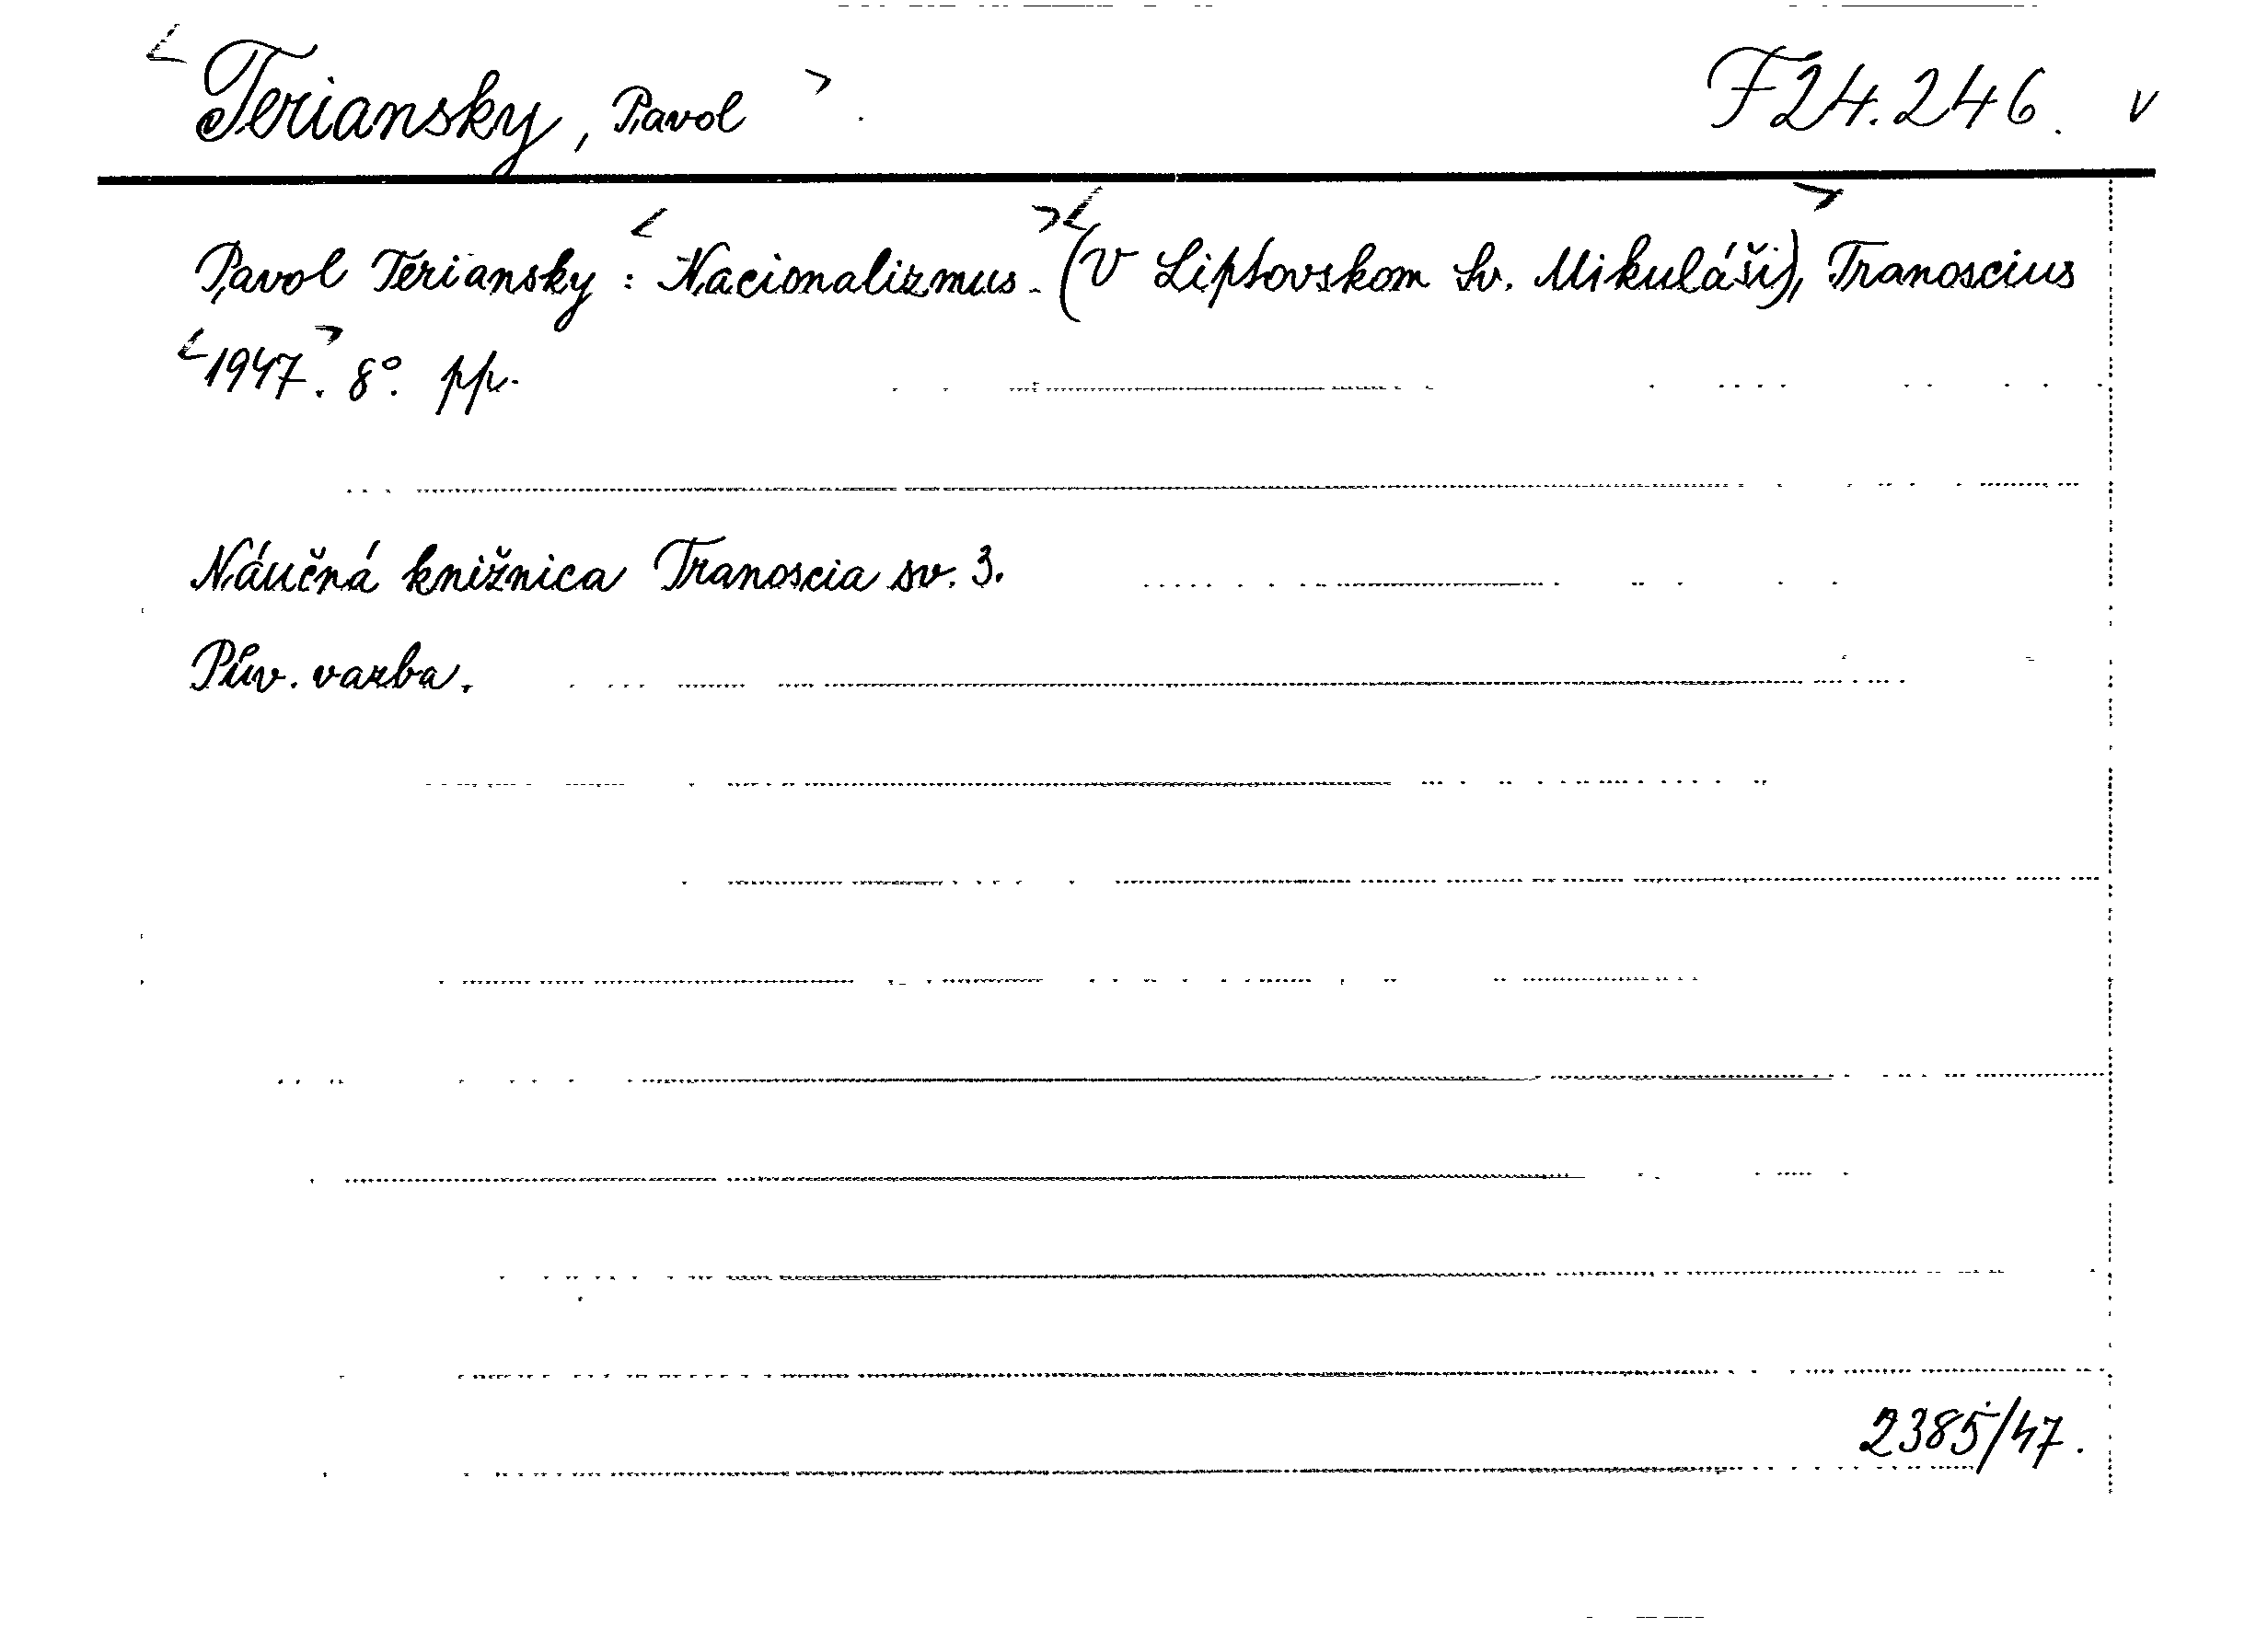 <Teriansky, Pavol>. F 24.246. v
Pavol Teriansky: <Nacionalizmus.> <(V Liptovskom Sv. Mikuláši)>, Tranoscius
<1947>. 8°. pp.
Náučná knižnica Tranoscia sv. 3.
Pův. vazba.
2385/47.